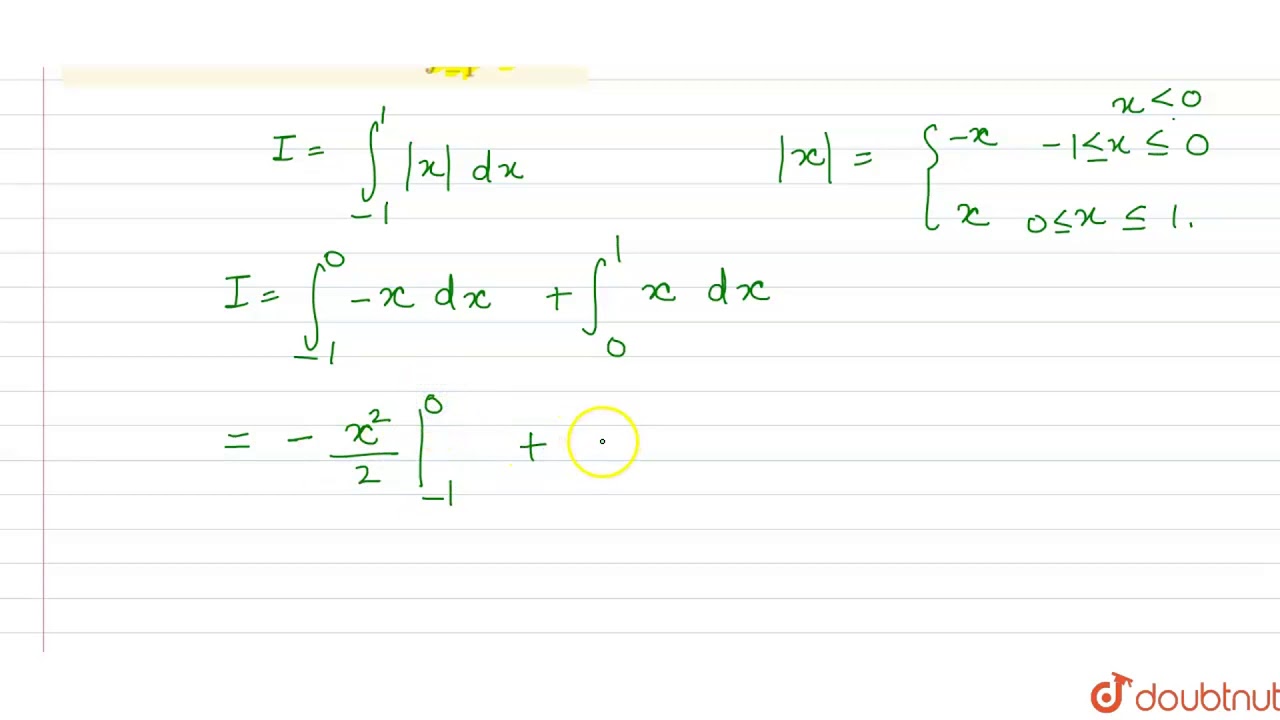 I = ∫_{-1}^{1} |x| dx
x < 0
|x| = { -x   -1 ≤ x ≤ 0
x   0 ≤ x ≤ 1.
I = ∫_{-1}^{0} -x dx + ∫_{0}^{1} x dx
= - x²/2 |_{-1}^{0} +
doubtnut